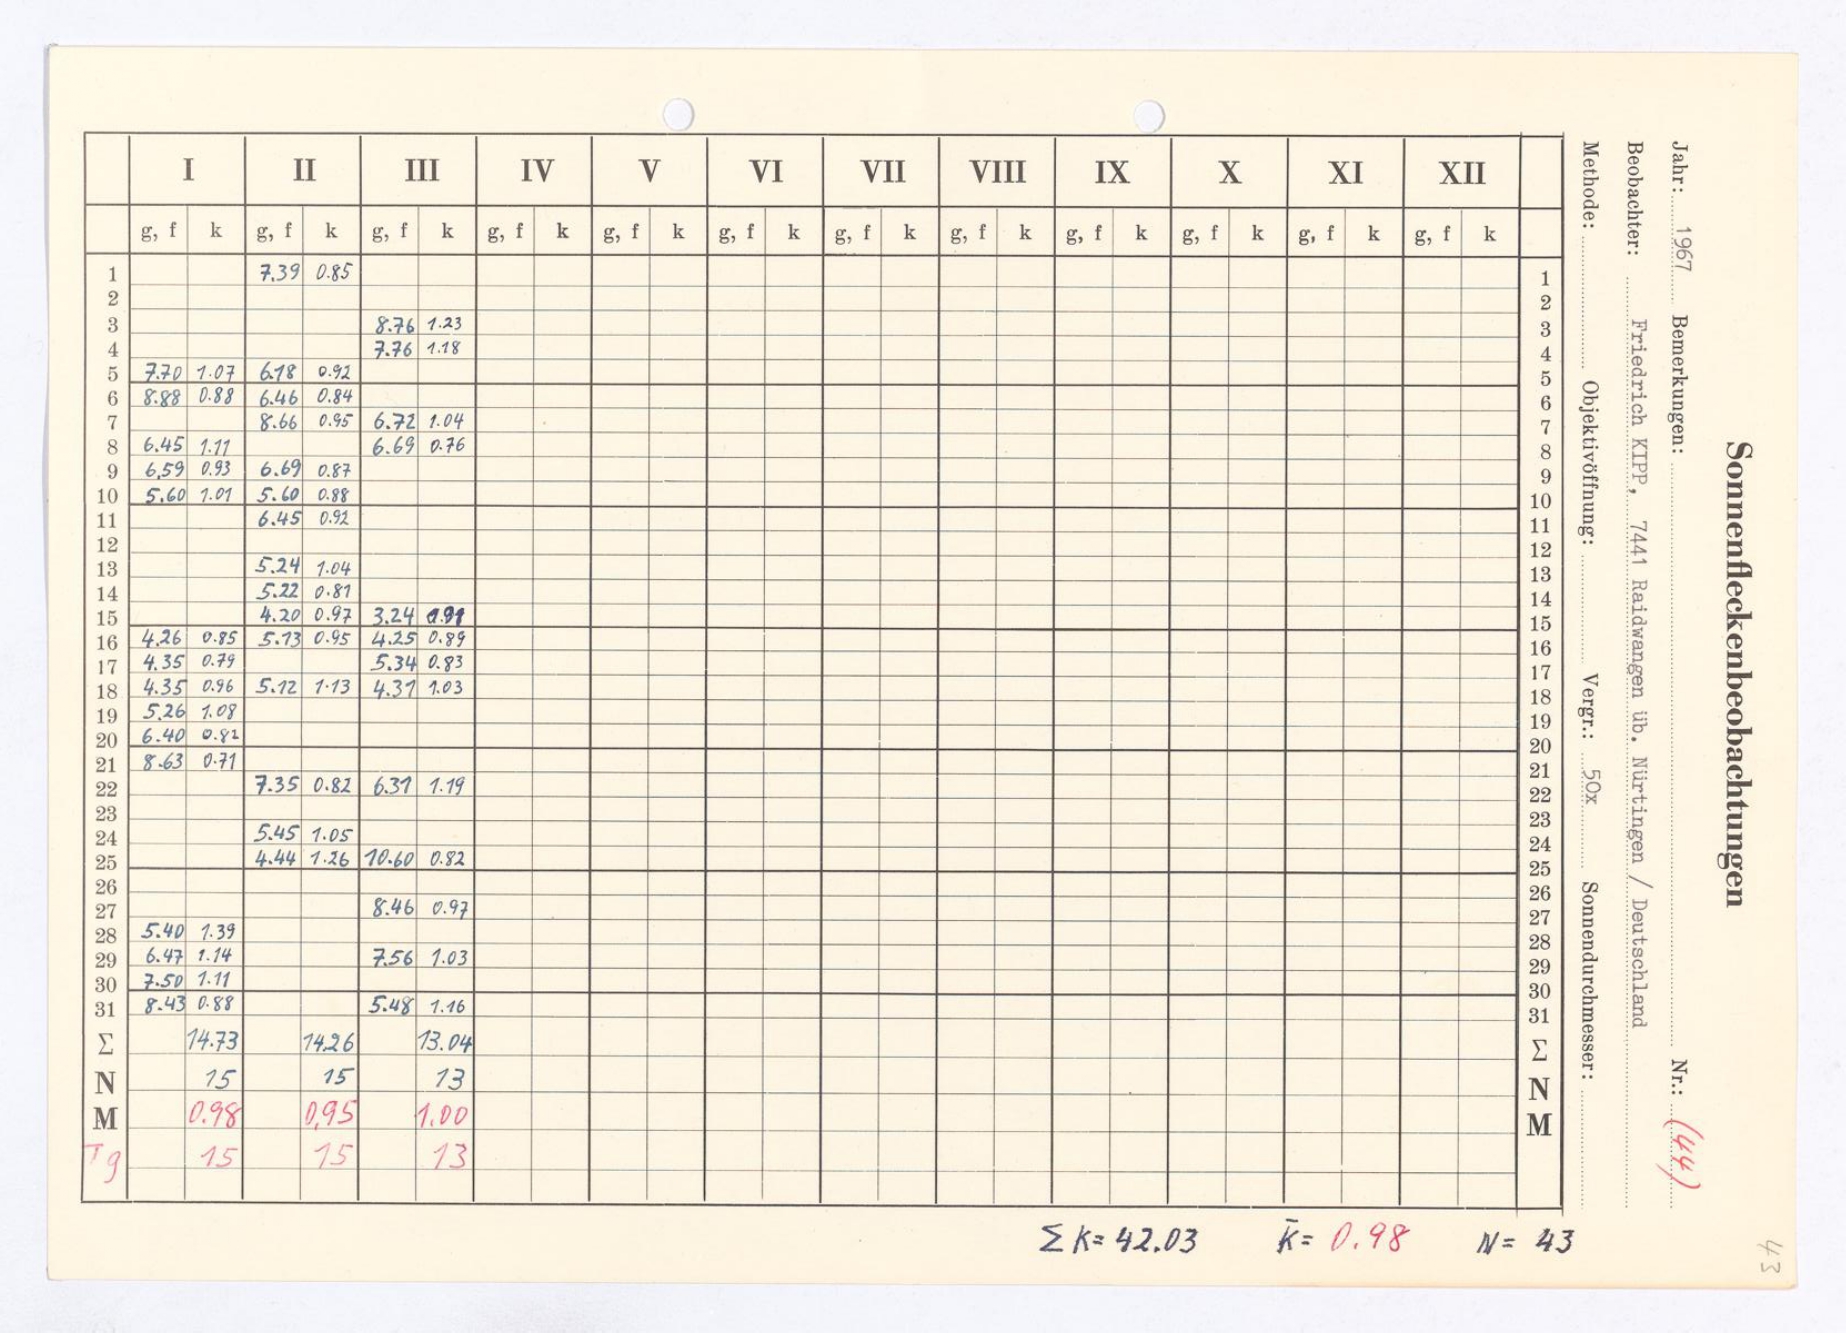 Sonnenfleckenbeobachtungen
Jahr: 1967 Bemerkungen: Nr.: (44)
Beobachter: Friedrich KIPP, 7441 Raidwangen üb. Nürtingen / Deutschland
Methode: Objektivöffnung: Vergr.: 50x Sonnendurchmesser:
I II III IV V VI VII VIII IX X XI XII
g, f k g, f k g, f k g, f k g, f k g, f k g, f k g, f k g, f k g, f k g, f k g, f k
1 7.39 0.85 1
2 2
3 8.76 1.23 3
4 7.76 1.18 4
5 7.70 1.07 6.18 0.92 5
6 8.88 0.88 6.46 0.84 6
7 8.66 0.95 6.72 1.04 7
8 6.45 1.11 6.69 0.76 8
9 6,59 0.93 6.69 0.87 9
10 5.60 1.01 5.60 0.88 10
11 6.45 0.92 11
12 12
13 5.24 1.04 13
14 5.22 0.81 14
15 4.20 0.97 3.24 15
16 4.26 0.85 5.13 0.95 4.25 0.89 16
17 4.35 0.79 5.34 0.83 17
18 4.35 0.96 5.12 1.13 4.31 1.03 18
19 5.26 1.08 19
20 6.40 0.82 20
21 8.63 0.71 21
22 7.35 0.82 6.31 1.19 22
23 23
24 5.45 1.05 24
25 4.44 1.26 10.60 0.82 25
26 26
27 8.46 0.97 27
28 5.40 1.39 28
29 6.47 1.14 7.56 1.03 29
30 7.50 1.11 30
31 8.43 0.88 5.48 1.16 31
Σ 14.73 14.26 13.04 Σ
N 15 15 13 N
M 0.98 0,95 1.00 M
Tg 15 15 13
Σ K = 42.03 k̄ = 0.98 N = 43
43